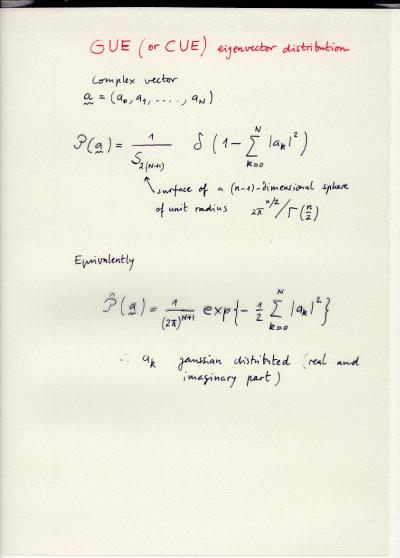 GUE (or CUE) eigenvector distribution
Complex vector
a = (a₀, a₁, ....., a_N)
P(a) = 1/S_{2(N+1)} δ(1 - ∑_{k=0}^{N} |a_k|²)
surface of a (n-1)-dimensional sphere
of unit radius 2π^{n/2}/Γ(n/2)
Equivalently
P̂(a) = 1/(2π)^{N+1} exp{-½ ∑_{k=0}^{N} |a_k|²}
∴ a_k gaussian distributed (real and
imaginary part)